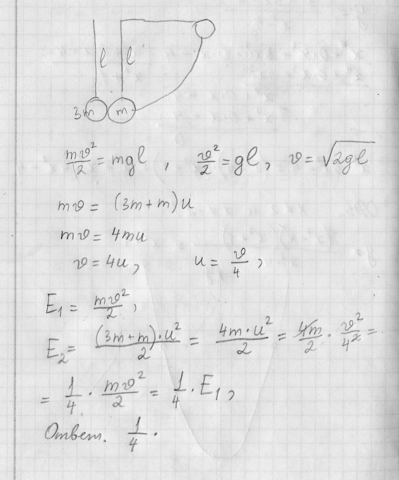 l l
3m m
mv²/2 = mgl , v²/2 = gl, v = √2gl
mv = (3m+m)u
mv = 4mu
v = 4u, u = v/4,
E₁ = mv²/2,
E₂ = (3m+m)·u²/2 = 4m·u²/2 = 4m/2 · v²/4² =
= 1/4 · mv²/2 = 1/4 · E₁,
Ответ. 1/4.